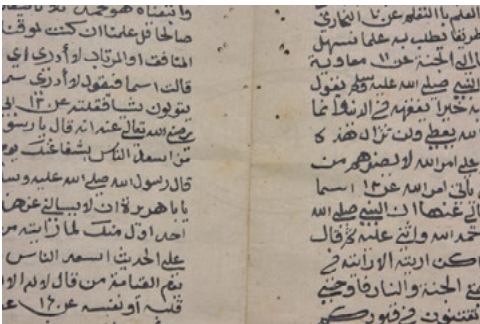 العلم بالتعلم عن ١٠ البخاري
طريقا يطلب به علما سهل
الى الجنة عن ١١ معاوية
النبي صلى الله عليه وسلم يقول
به خيرا يفقهه في الدين وانما
الله يعطي ولن تزال هذه
على امر الله لا يضرهم من
ياتي امر الله عن ١٢ اسما
لى عنها ان النبي صلى الله
حمد الله واثنى عليه ثم قال
اكن اريته الا رايته في
حتى الجنة والنار فاوحي
تفتنون في قبوركم
واتبعناه هو محمد ثلاثا
صالحا قد علمنا ان كنت لموقنا
المنافق او المرتاب لا ادري اي
قالت اسما فيقول لا ادري سم
يقولون شيا فقلته عن ١٣
رضي الله تعالى عنه انه قال يا رسو
من اسعد الناس بشفاعتك يوم
قال رسول الله صلى الله عليه وس
يا با هريرة ان لا يسالني عن هذ
احد اول منك لما رايت من
على الحديث اسعد الناس
يوم القيامة من قال لا اله الا
قلبه او نفسه عن ١٤ عب